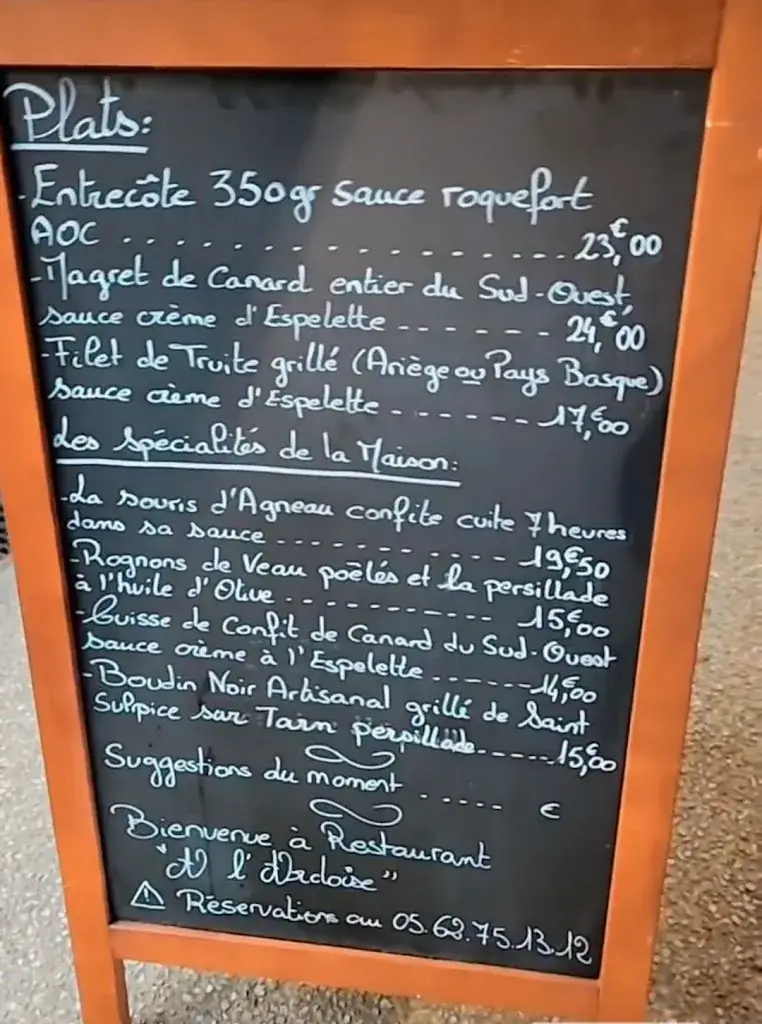 Plats:
- Entrecôte 350gr sauce roquefort
AOC ................ 23,€00
- Magret de Canard entier du Sud-Ouest,
sauce crème d'Espelette ------- 24,€00
- Filet de Truite grillé (Ariège ou Pays Basque)
sauce crème d'Espelette ------- 17,€00
Les Spécialités de la Maison:
- La souris d'Agneau confite cuite 7 heures
dans sa sauce ------------ 19,€50
- Rognons de Veau poêlés et la persillade
à l'huile d'Olive ------------ 15,€00
- Cuisse de Confit de Canard du Sud-Ouest
sauce crème à l'Espelette ------- 14,€00
- Boudin Noir Artisanal grillé de Saint
Sulpice sur Tarn perpillade ------ 15,€00
Suggestions du moment ----- €
Bienvenue à Restaurant
"A l'Ardoise"
⚠ Réservations au 05.62.75.13.12